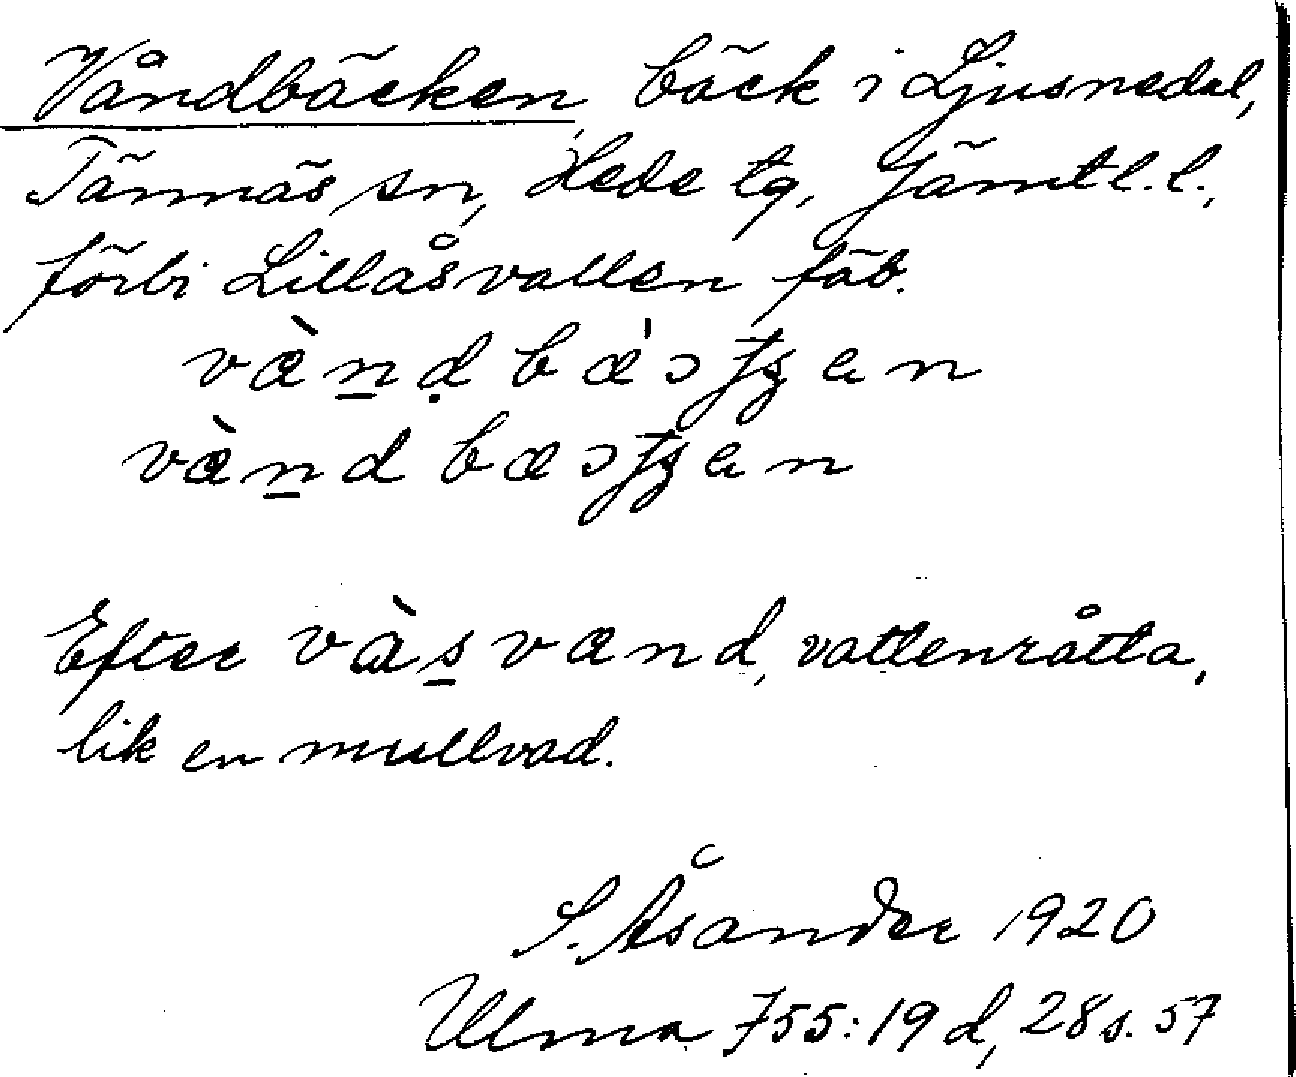 Våndbäcken, bäck i Ljusnedal,
Tännäs sn, Hede tg, Jämtl. l.,
förbi Lillåsvallen fäb.
Efter vàs̲vænd, vattenråtta,
lik en mullvad.
S. Åsander 1920
Ulma 755:19 d, 28 s. 57